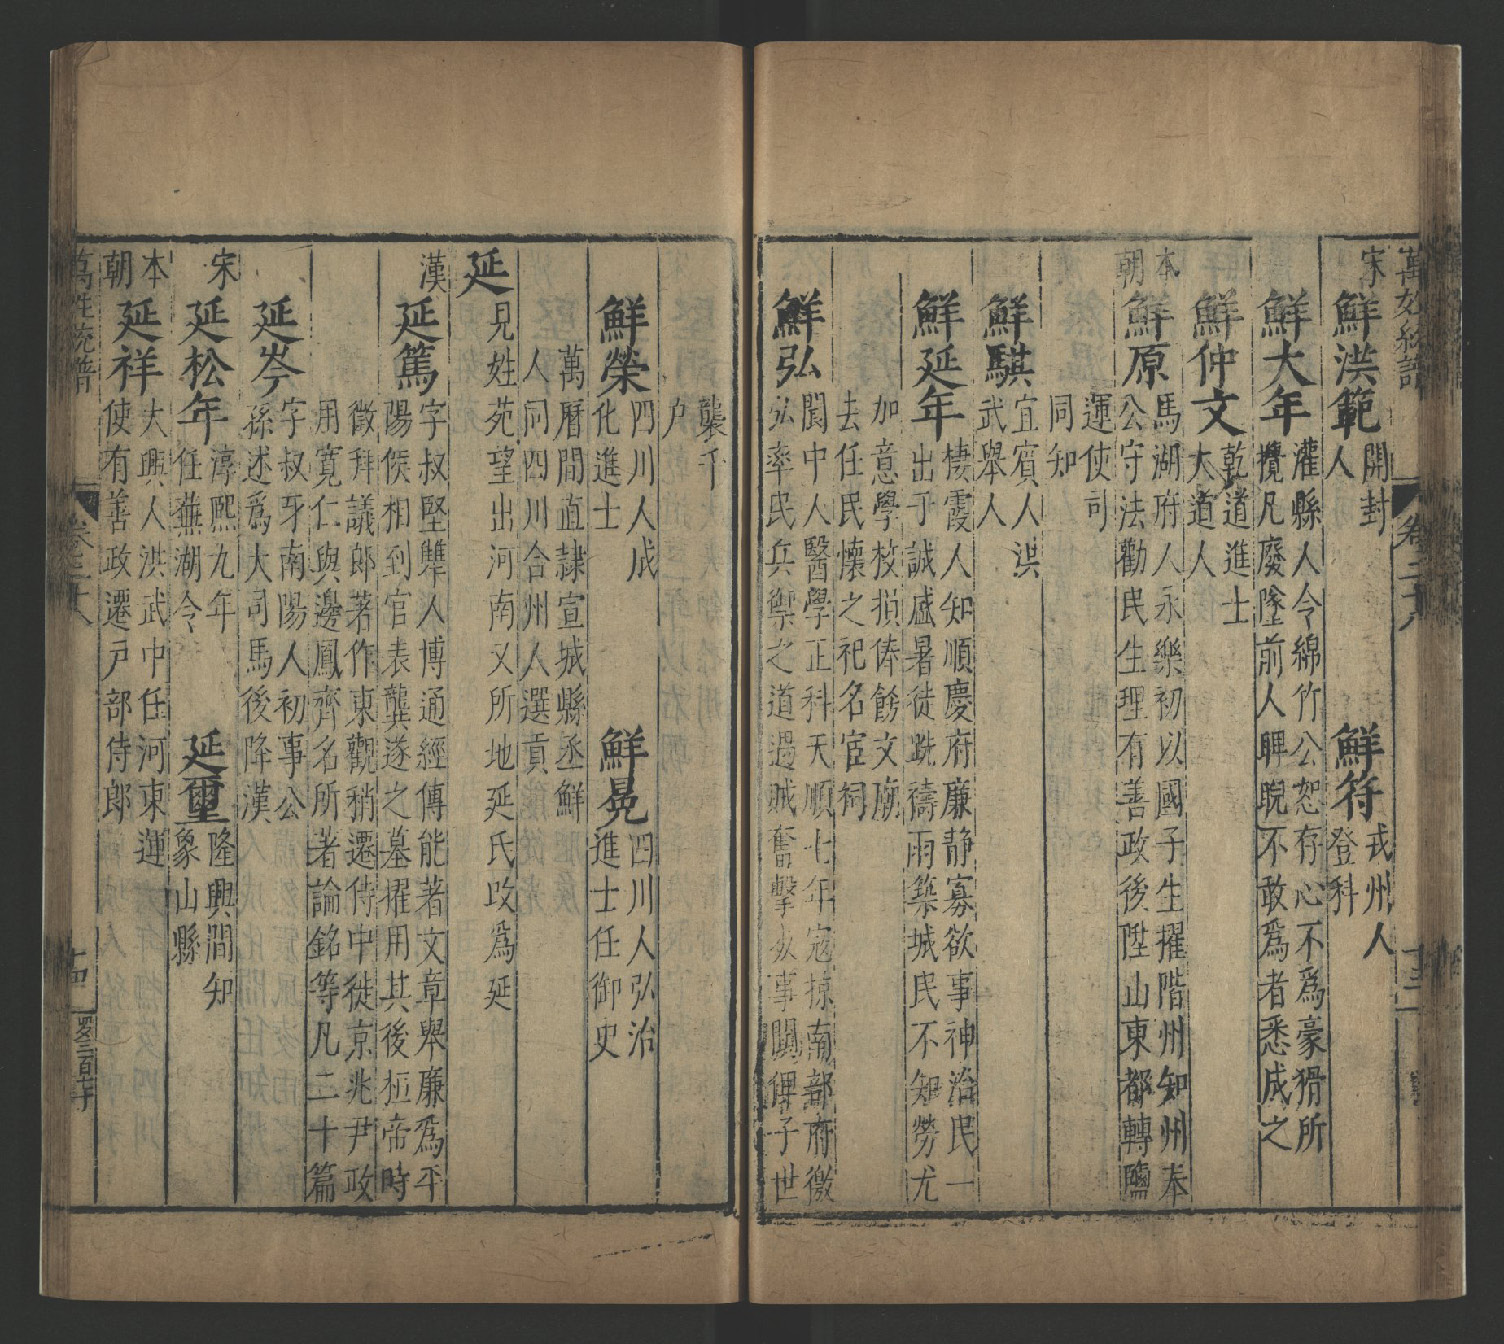 萬姓統譜
卷二十八
十三
宋
鮮洪範
開封
人
鮮符
戎州人
登科
鮮大年
灌縣人令綿竹公恕存心不爲豪猾所
攪凡廢墜前人睥睨不敢爲者悉成之
鮮仲文
乾道進士
大道人
本
朝
鮮原
馬湖府人永樂初以國子生擢階州知州奉
公守法勸民生理有善政後陞山東都轉鹽
運使司
同知
鮮騏
宜賓人洪
武舉人
鮮延年
棲霞人知順慶府廉静寡欲事神治民一
出于誠盛暑徒跣禱雨築城民不知勞尤
加意學校損俸餙文廟
去任民懷之祀名宦祠
鮮弘
閬中人醫學正科天順七年寇掠南部府徼
弘率民兵禦之道遇贼奮擊
事聞俾子世
襲千
户
鮮榮
四川人成
化進士
鮮晃
四川人弘治
進士任御史
萬曆間直隷宣城縣丞鮮
人同四川合州人選貢
延
見姓苑望出河南又所地延氏改爲延
漢
延篤
字叔堅犨人博通經傳能著文章舉廉爲平
陽侯相到官表龔遂之墓擢用其後桓帝時
徵拜議郎著作東觀稍遷侍中徙京兆尹政
用寬仁與邊鳳齊名所著論銘等凡二十篇
延岑
字叔牙南陽人初事公
孫述爲大司馬後降漢
宋
延松年
淳熙九年
任蕪湖令
延璽
隆興間知
象山縣
本
朝
延祥
大興人洪武中任河東運
使有善政遷戸部侍郎
萬姓統譜
卷二十八
十四